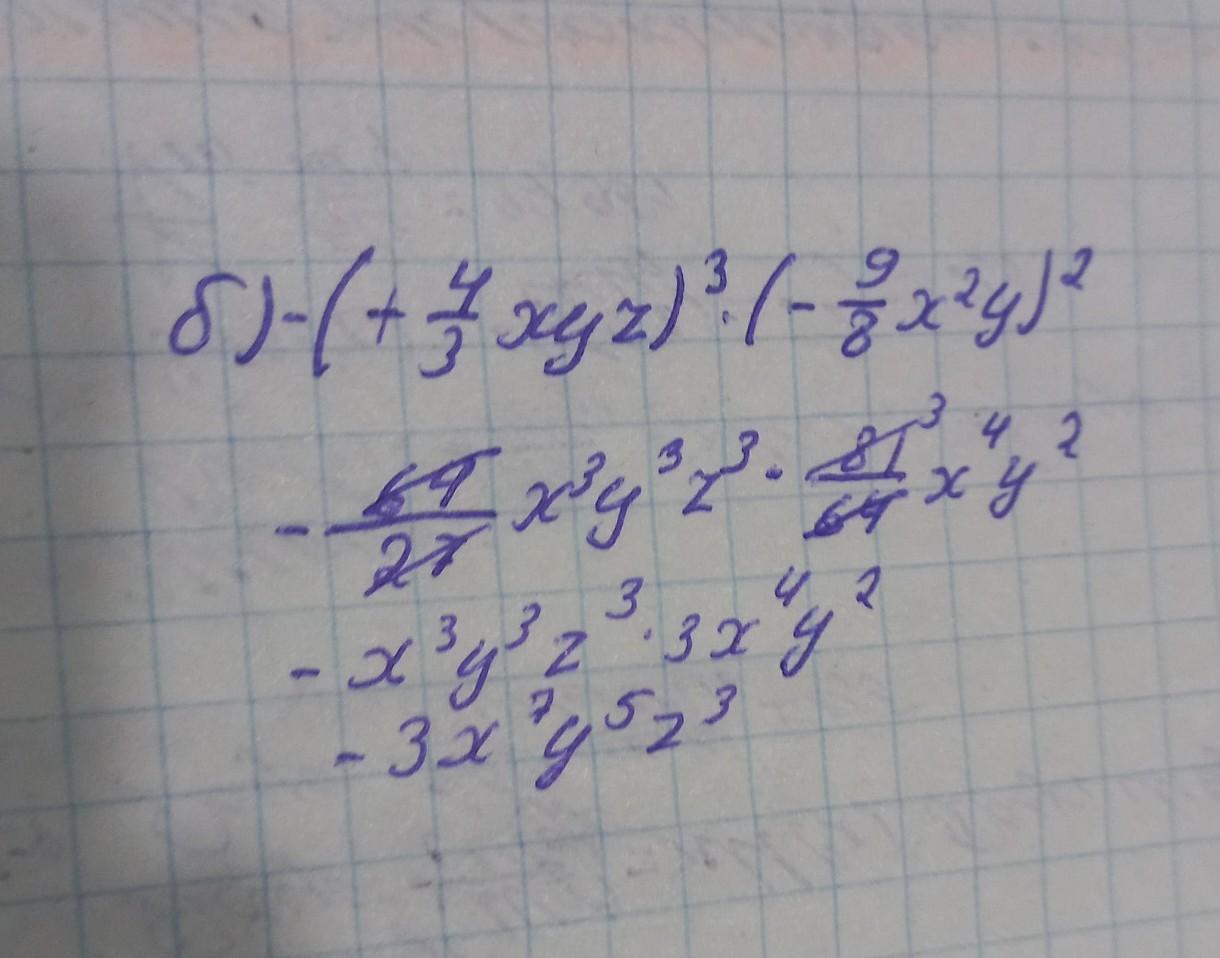 б) -(+4/3 xyz)³·(-9/8 x²y)²
-64/27 x³y³z³·81/64 ³ x⁴y²
-x³y³z³·3x⁴y²
-3x⁷y⁵z³